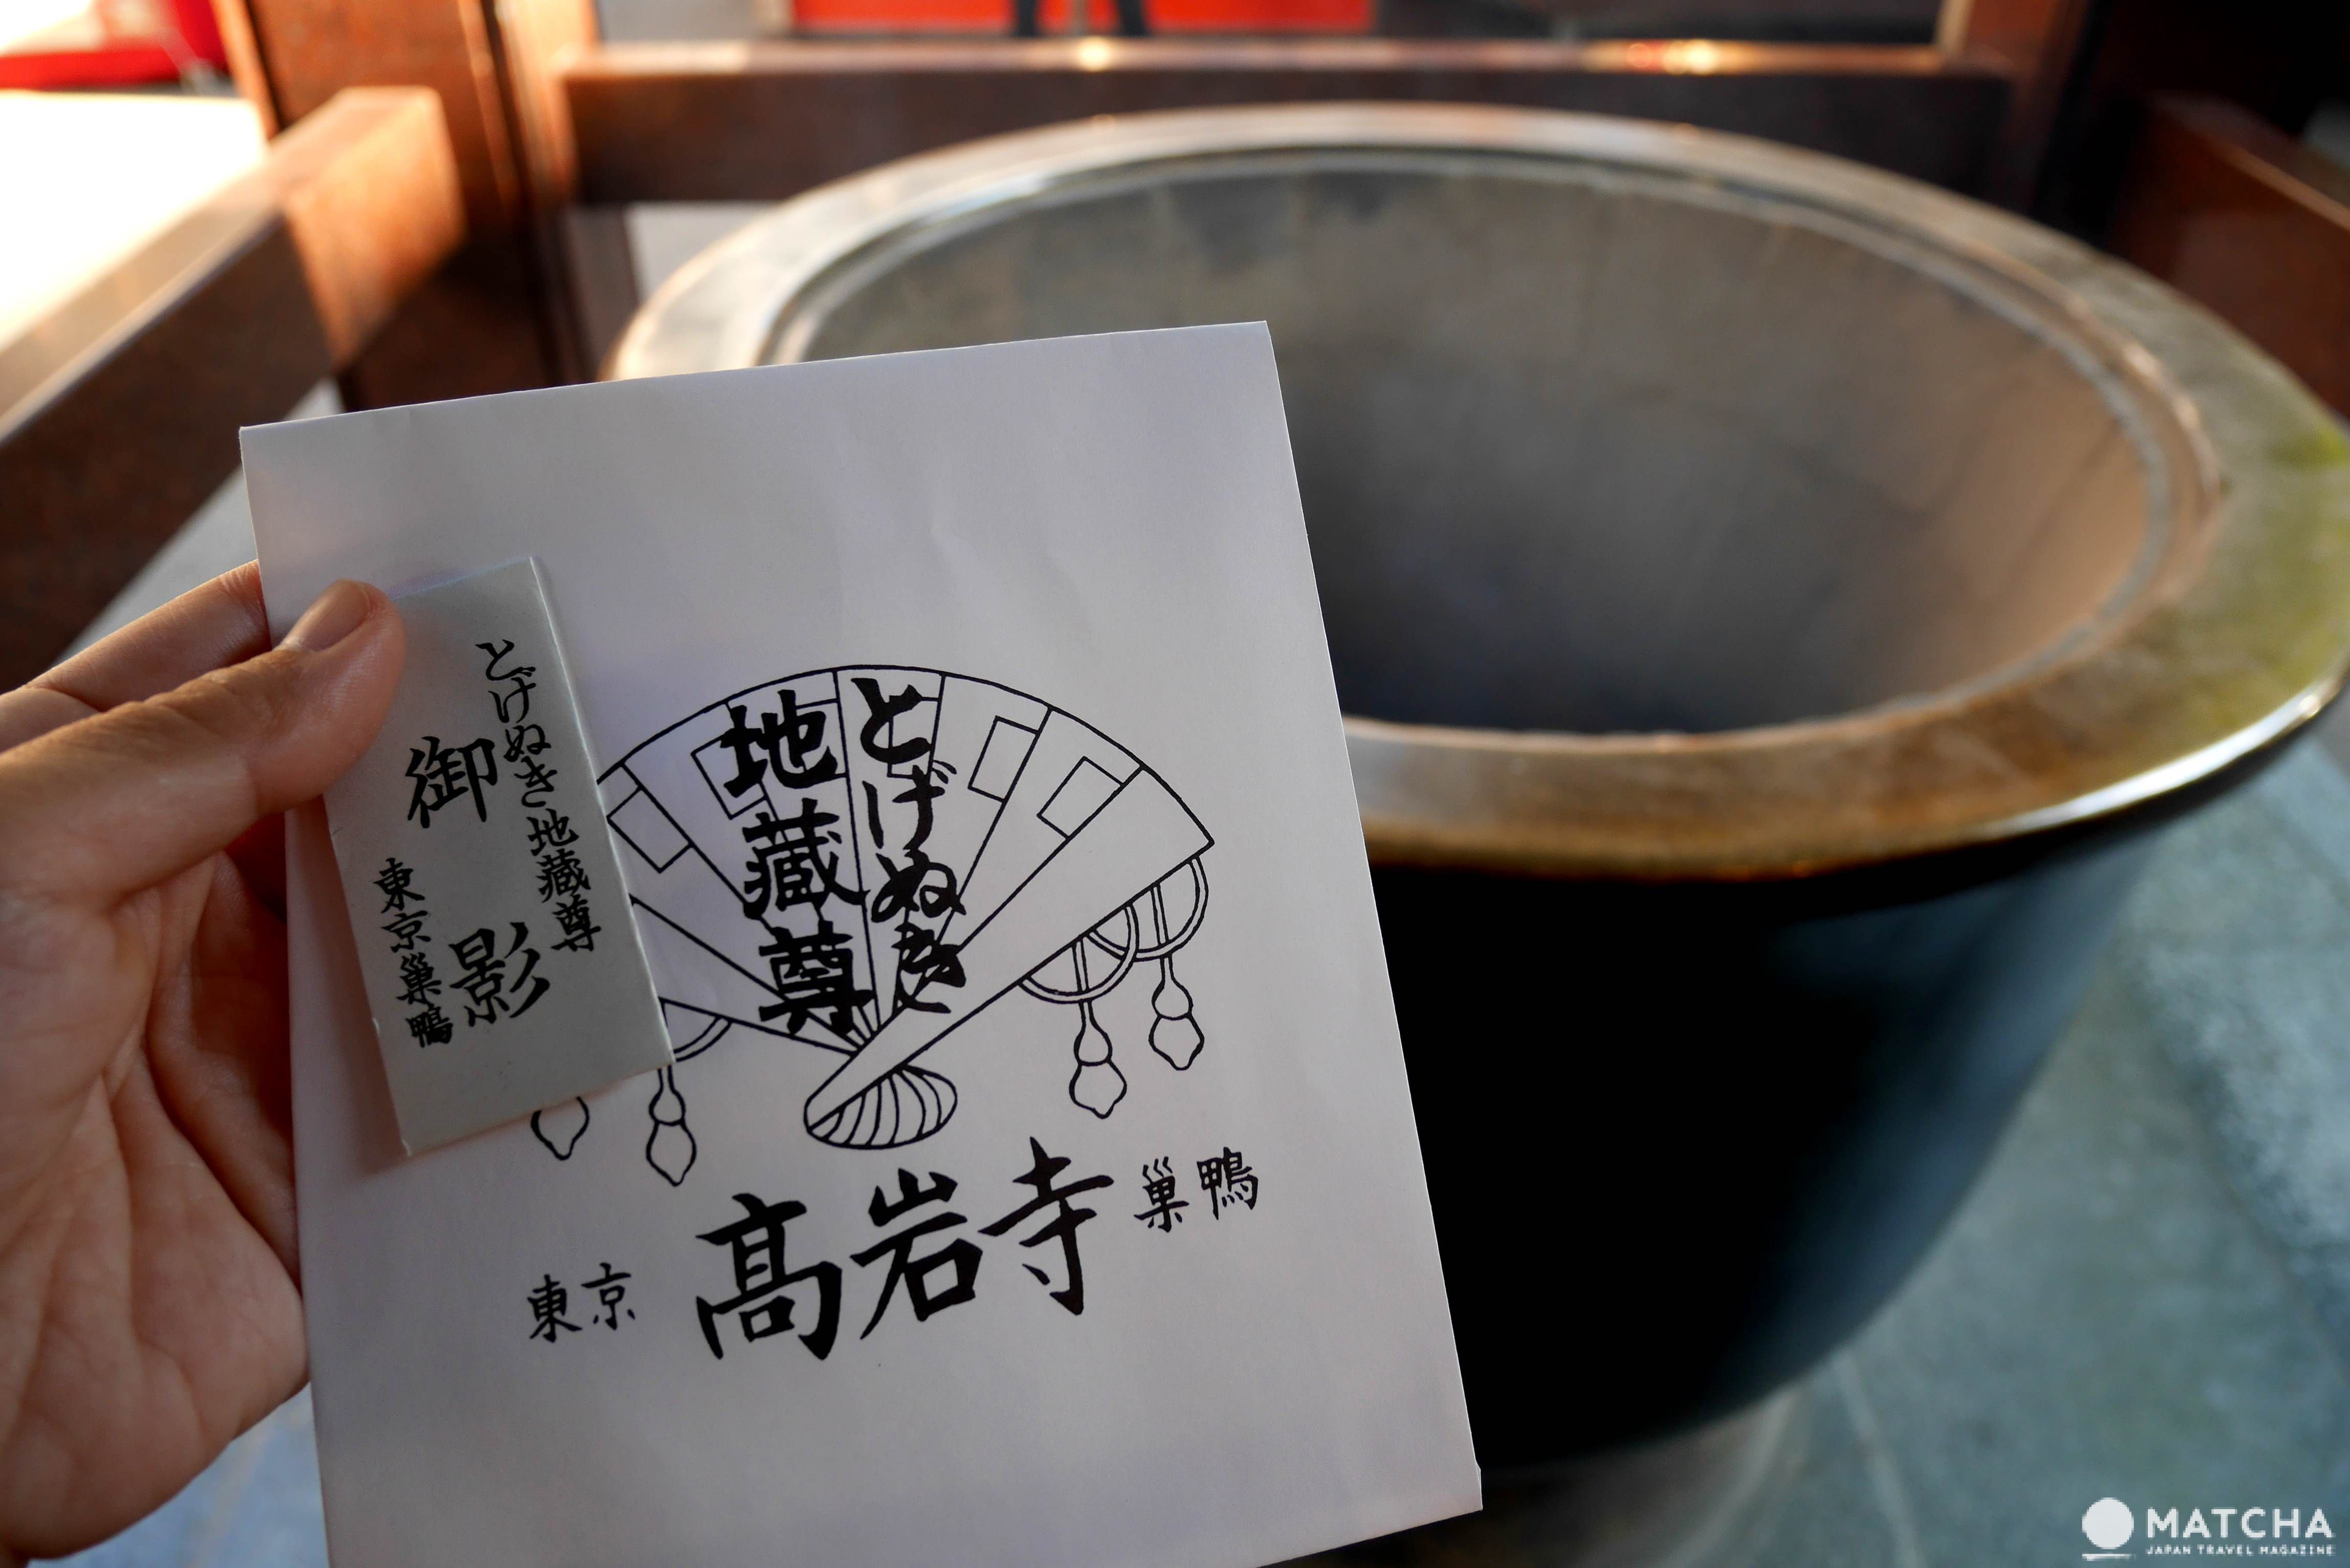 とげぬき地蔵尊
御影
東京巣鴨
とげぬき
地蔵尊
東京 高岩寺 巣鴨
MATCHA
JAPAN TRAVEL MAGAZINE